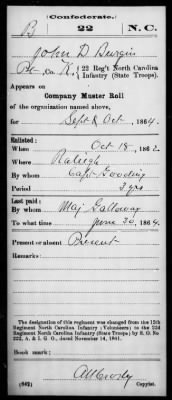 (Confederate.)
B 22 N.C.
John D Burgin
Pt, Co. K, 22 Reg't North Carolina
Infantry (State Troops).
Appears on
Company Muster Roll
of the organization named above,
for Sept & Oct, 1864.
Enlisted:
When Oct 18, 1862.
Where Raleigh
By whom Capt Gooding
Period 3 yrs
Last paid:
By whom Maj Galloway
To what time June 30, 1864.
Present or absent Present
Remarks:
The designation of this regiment was changed from the 12th
Regiment North Carolina Infantry (Volunteers) to the 22d
Regiment North Carolina Infantry (State Troops) by S. O. No
222, A. & I. G. O., dated November 14, 1861.
Book mark:
(642)
Copyist.